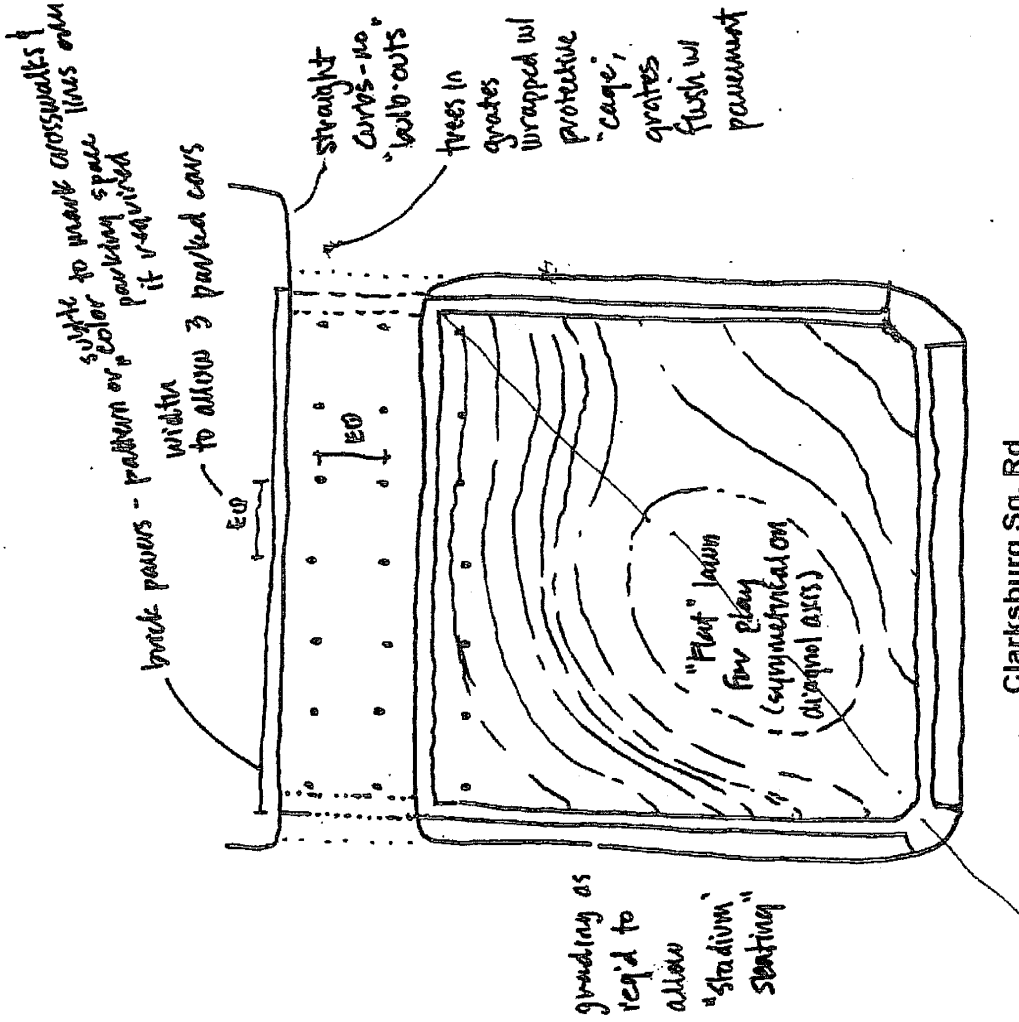 subtle to mark crosswalks &
brick pavers - pattern or color parking space lines only
if required
width
to allow 3 parked cars
EQ
straight
curbs - no
"bulb-outs"
trees in
grates
wrapped w/
protective
"cage",
grates
flush w/
pavement
EQ
"Flat" lawn
for play
(symmetrical on
diagnol axis)
grading as
req'd to
allow
"stadium"
seating
Clarksburg Sq. Rd